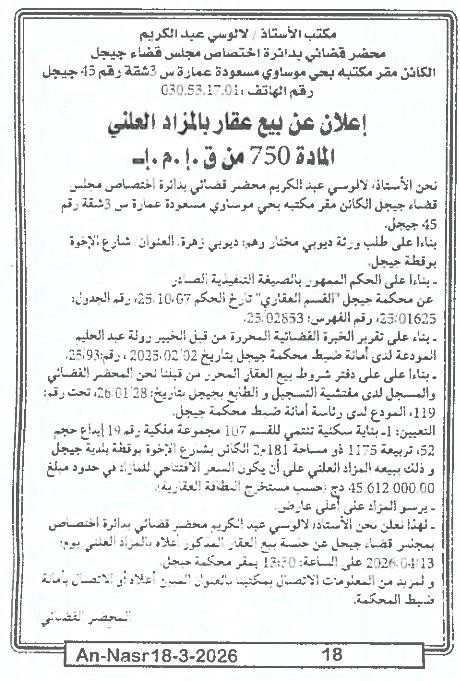 مكتب الأستاذ / لالوسي عبد الكريم
محضر قضائي بدائرة اختصاص مجلس قضاء جيجل
الكائن مقر مكتبه بحي موساوي مسعودة عمارة س 3 شقة رقم 45 جيجل
رقم الهاتف : 030.53.17.01
إعلان عن بيع عقار بالمزاد العلني
المادة 750 من ق . إ . م . إ
نحن الأستاذ/ لالوسي عبد الكريم محضر قضائي بدائرة اختصاص مجلس
قضاء جيجل الكائن مقر مكتبه بحي موساوي مسعودة عمارة س 3 شقة رقم
45 جيجل.
بناءا على طلب ورثة ديوبي مختار وهم: ديوبي زهرة، العنوان/ شارع الإخوة
بوقطة جيجل.
- بناءا على الحكم الممهور بالصيغة التنفيذية الصادر
عن محكمة جيجل "القسم العقاري" تاريخ الحكم 25/10/07، رقم الجدول:
25/01625، رقم الفهرس: 25/02853.
- بناء على تقرير الخبرة القضائية المحررة من قبل الخبير رولة عبد الحليم
المودعة لدى أمانة ضبط محكمة جيجل بتاريخ 2025/02/02 ، رقم: 25/93.
- بناءا على على دفتر شروط بيع العقار المحرر من قبلنا نحن المحضر القضائي
والمسجل لدى مفتشية التسجيل و الطابع بجيجل بتاريخ: 26/01/28، تحت رقم:
119، المودع لدى رئاسة أمانة ضبط محكمة جيجل.
التعيين: 1- بناية سكنية تنتمي للقسم 107 مجموعة ملكية رقم 19 إيداع حجم
52، تربيعة 1175 ذو مساحة 181م2 الكائن بشارع الإخوة بوقطة بلدية جيجل
و ذلك ببيعه المزاد العلني على أن يكون السعر الافتتاحي للمزاد في حدود مبلغ
45.612.000.00 دج (حسب مستخرج البطاقة العقارية).
- يرسو المزاد على أعلى عارض.
- لهذا نعلن نحن الأستاذ/ لالوسي عبد الكريم محضر قضائي بدائرة اختصاص
بمجلس قضاء جيجل عن جلسة بيع العقار المذكور أعلاه بالمزاد العلني يوم:
2026/04/13 على الساعة: 13:30 بمقر محكمة جيجل.
و لمزيد من المعلومات الاتصال بمكتبنا بالعنوان المبين أعلاه أو الاتصال بأمانة
ضبط المحكمة.
المحضر القضائي
An-Nasr 18-3-2026 18